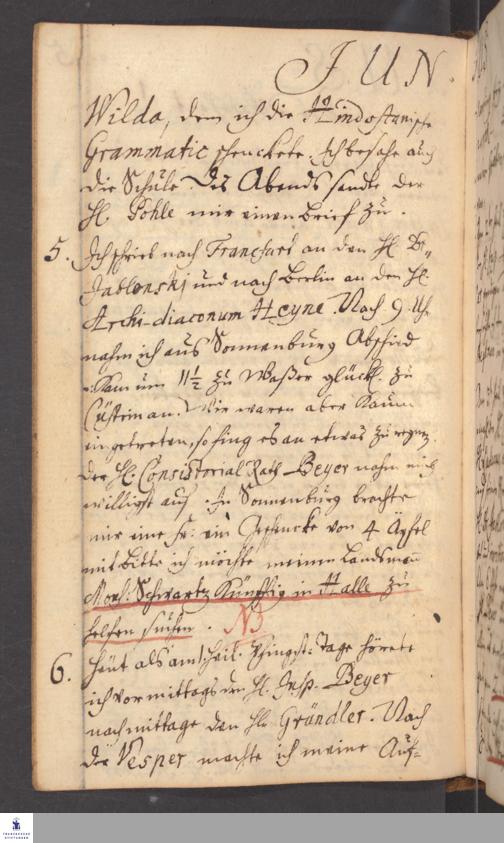 JUN.
Wilda, dem ich die Hindostanische
Grammatic schenckete. Ich besahe auch
die Schule. Des Abends sandte der
H. Pohle mir einen Brief zu.
5. Ich schrieb nach Francfurt an den H. Dr.
Jablonski und nach Berlin an den H.
Archi-diaconum Heyne. Nach 9 Uhr
nahm ich aus Sonnenburg Abschied
u. kam um 11 1/2 zu Waßer glückl. zu
Cüstrin an. Wir waren aber kaum
eingetreten, so fing es an etwas zu regnen.
der H. Consistorial Rath Beyer nahm mich
willigst auf. In Sonnenburg brachte
mir eine Fr: ein Geschencke von 4 Äpfel
mit bitte ich möchte meinen Landsmann
Mons: Schwartz künfftig in Halle zu
helfen suchen. NB
6. Heut als am 1. heil. Pfingst: Tage hörete
ich vormittags den H. Insp. Beyer
nachmittage den H. Gründler. Nach
der Vesper machte ich meine Auf-
FRANCKESCHE
STIFTUNGEN